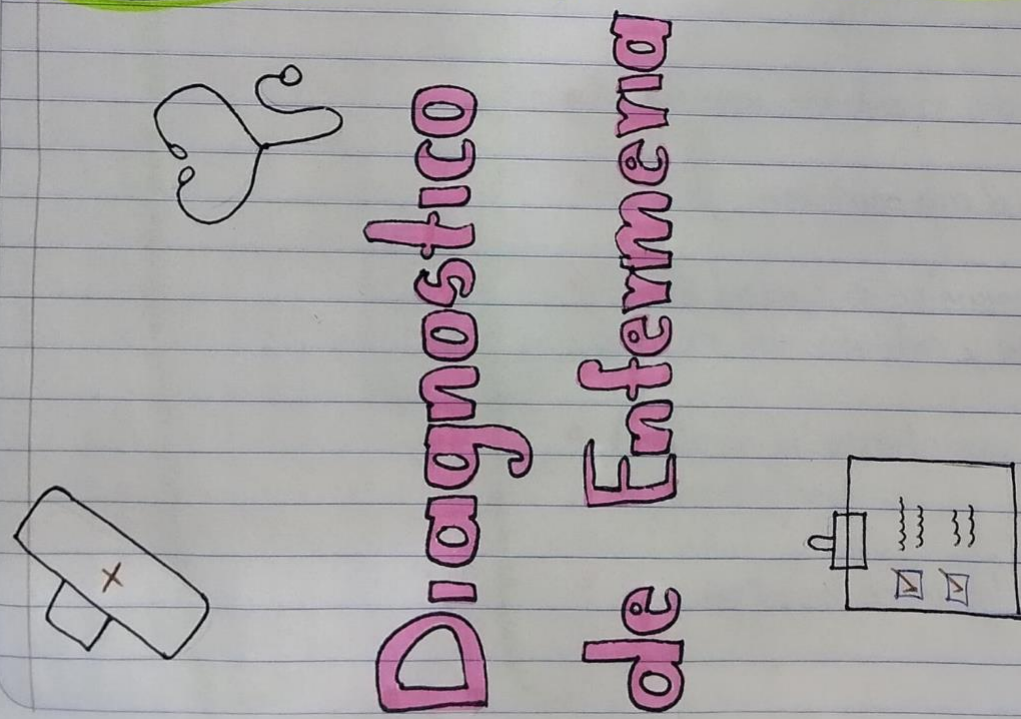 Diagnostico
de Enfermeria